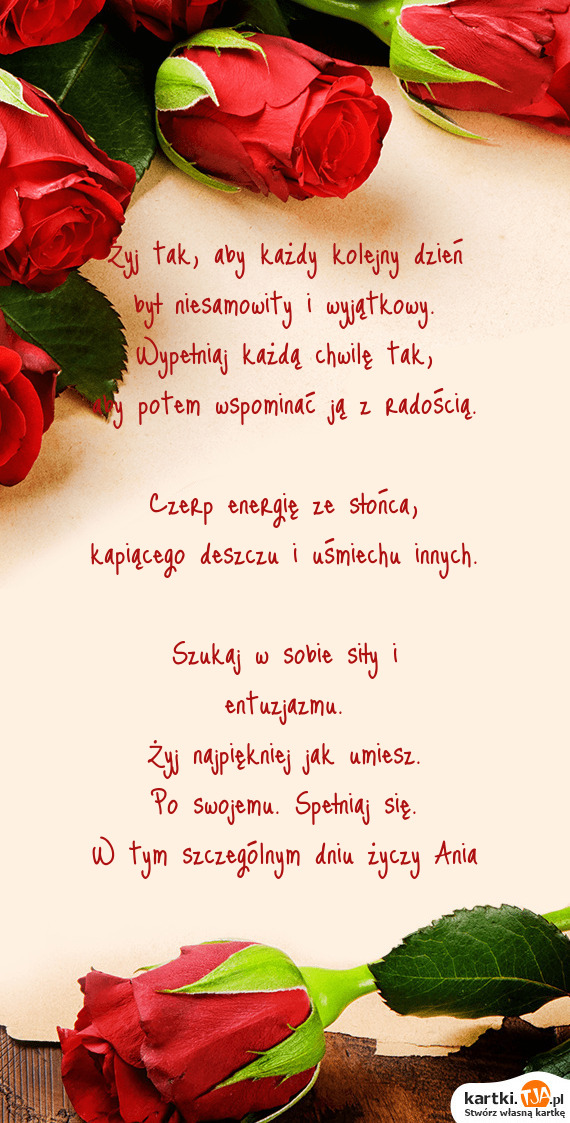 Żyj tak, aby każdy kolejny dzień
był niesamowity i wyjątkowy.
Wypełniaj każdą chwilę tak,
aby potem wspominać ją z radością.
Czerp energię ze słońca,
kapiącego deszczu i uśmiechu innych.
Szukaj w sobie siły i
entuzjazmu.
Żyj najpiękniej jak umiesz.
Po swojemu. Spełniaj się.
W tym szczególnym dniu życzy Ania
kartki.TJA.pl
Stwórz własną kartkę